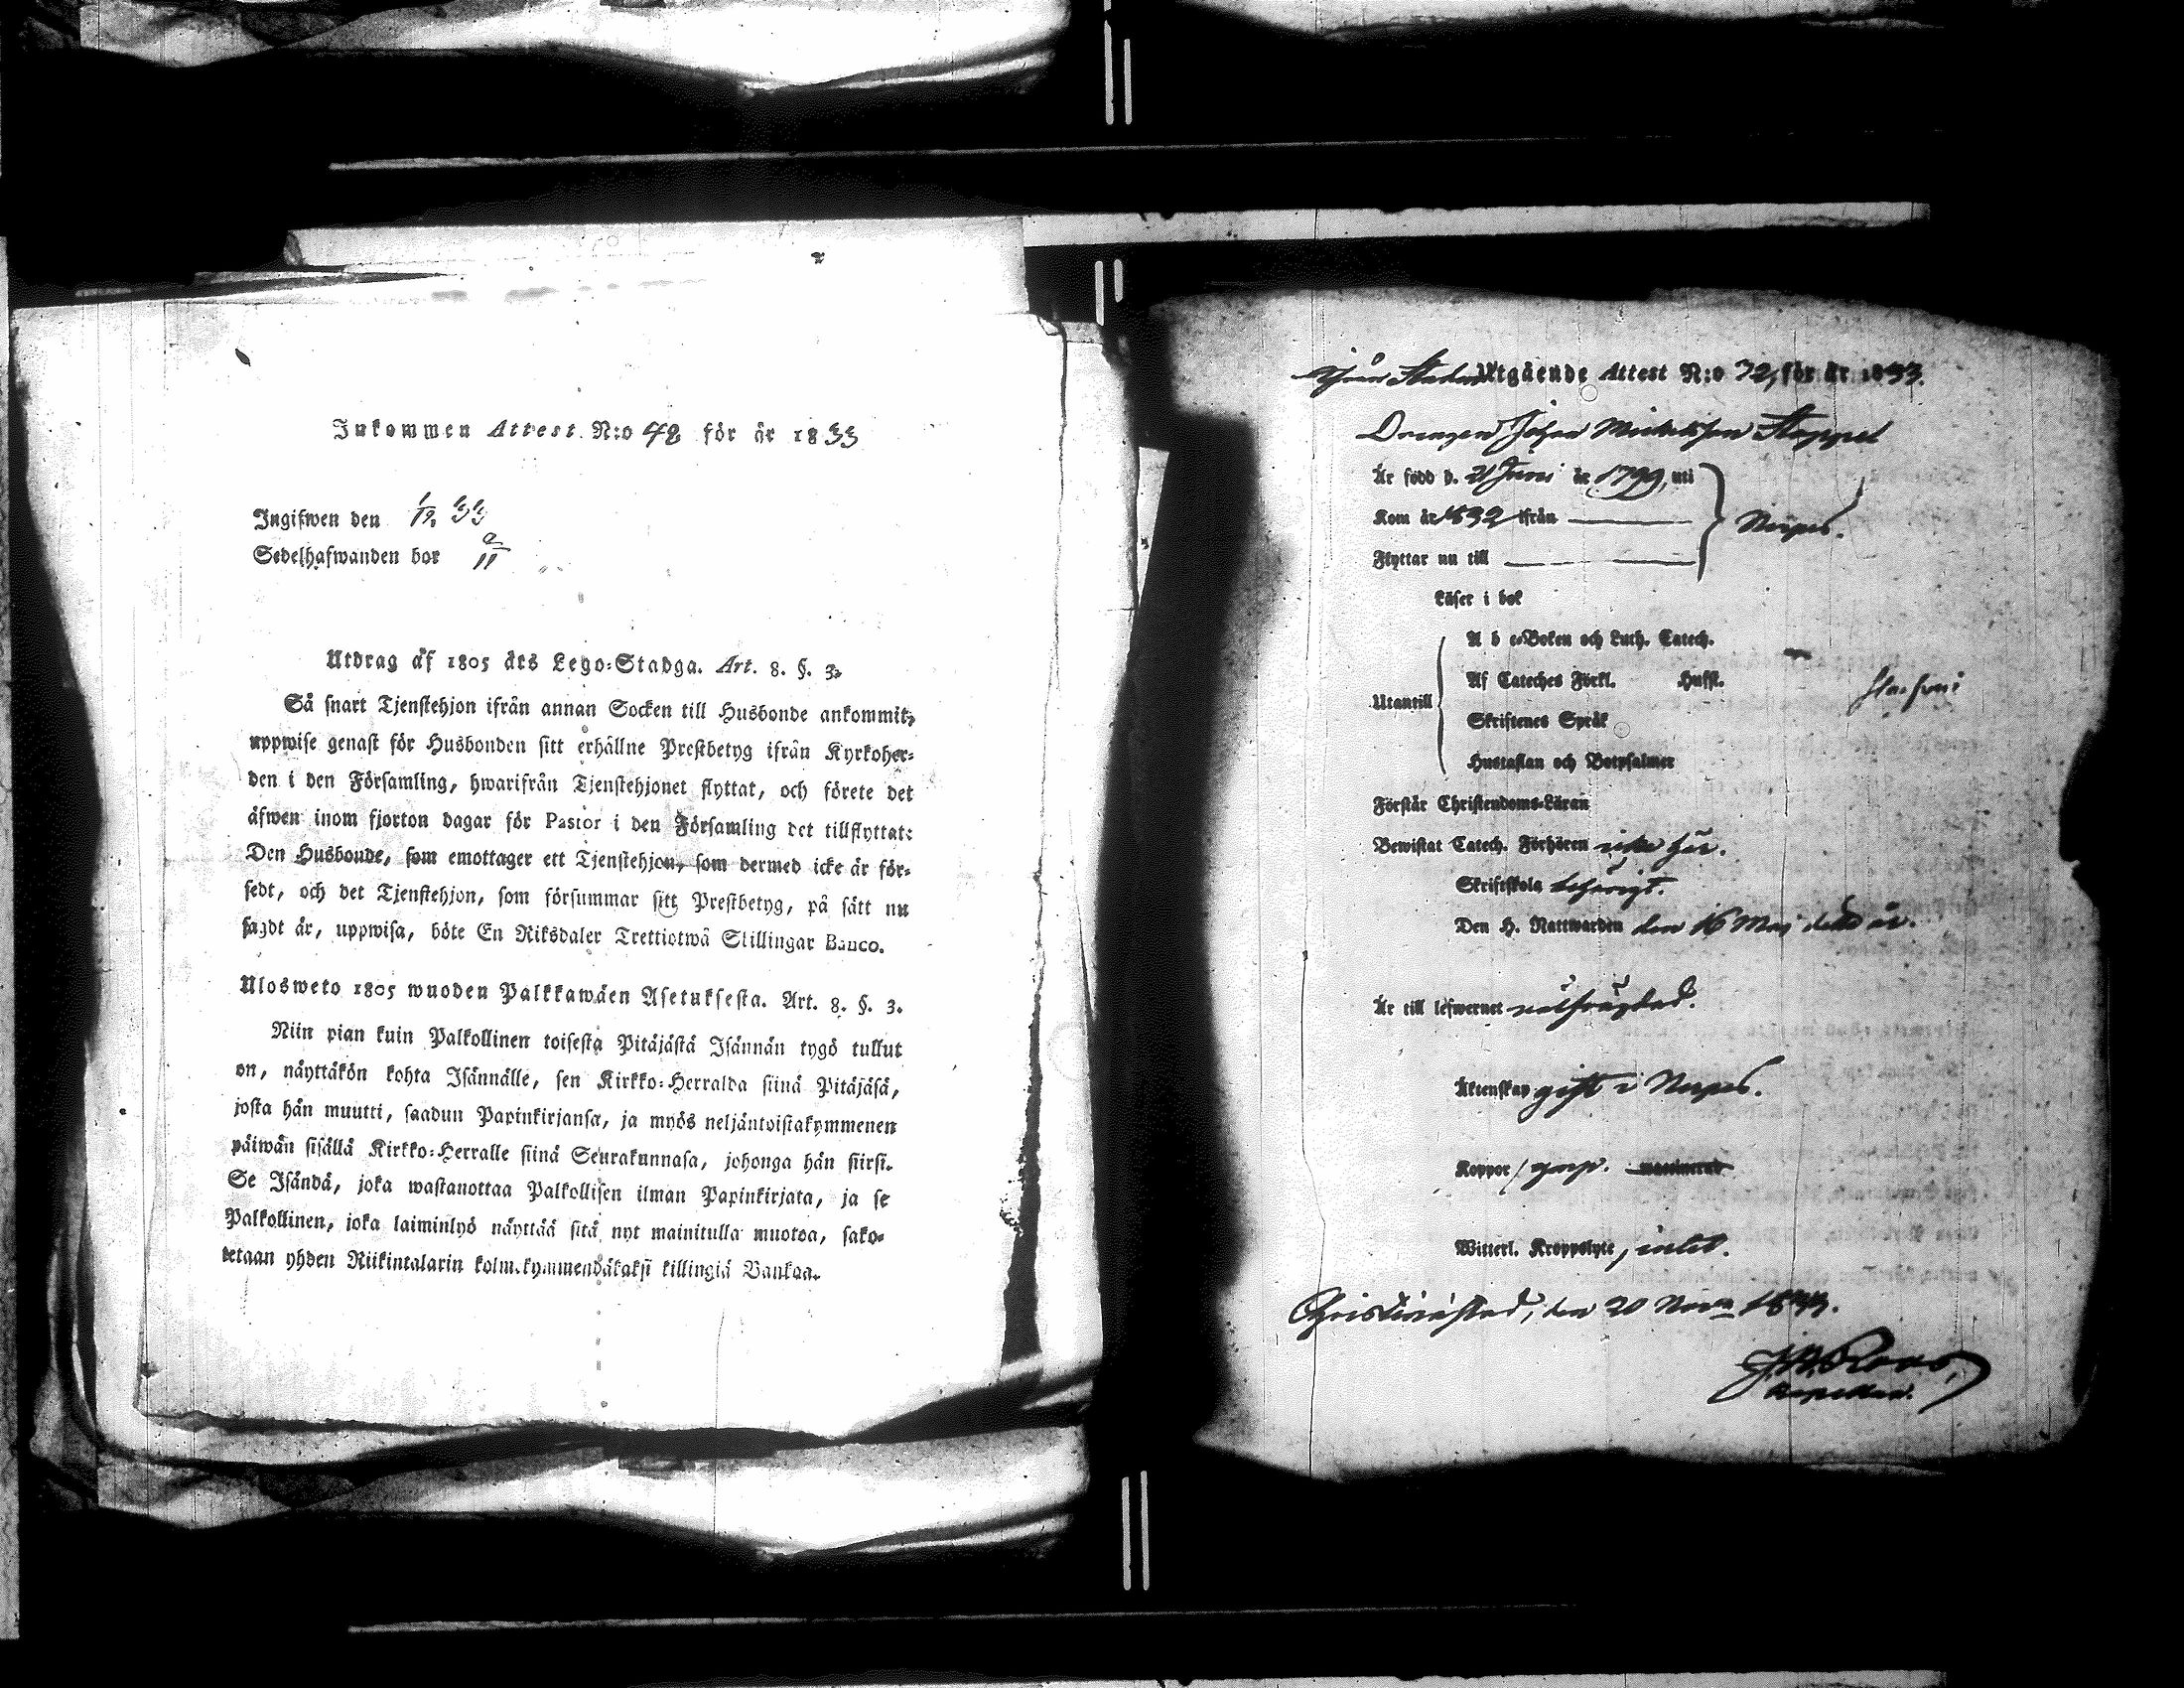 Inkommen Attest N:o 48 för år 1833
Ingifwen den 1/12 33
Sedelhafwanden bor
Utdrag af 1805 års Lego-Stadga. Art. 8. §. 3.
Så snart Tjenstehjon ifrån annan Socken till Husbonde ankommit,
uppwise genast för Husbonden sitt erhållne Prestbetyg ifrån Kyrkoher-
den i den Församling, hwarifrån Tjenstehjonet flyttat, och förete det
äfwen inom fjorton dagar för Pastor i den Församling det tillflyttat:
Den Husbonde, som emottager ett Tjenstehjon, som dermed icke är för-
sedt, och det Tjenstehjon, som försummar sitt Prestbetyg, på sätt nu
sagdt är, uppwisa, böte En Riksdaler Trettiotwå Skillingar Banco.
Ulosweto 1805 wuoden Palkkawäen Asetuksesta. Art. 8. §. 3.
Niin pian kuin Palkollinen toisesta Pitäjästä Isännän tygö tullut
on, näyttäkön kohta Isännälle, sen Kirkko-Herralda siinä Pitäjäsä,
josta hän muutti, saadun Papinkirjansa, ja myös neljäntoistakymmenen
päiwän sisällä Kirkko-Herralle siinä Seurakunnasa, johonga hän siirsi.
Se Isändä, joka wastanottaa Palkollisen ilman Papinkirjata, ja se
Palkollinen, joka laiminlyö näyttää sitä nyt mainitulla muotoa, sako-
tetaan yhden Riikintalarin kolmekymmendäkaksi killingiä Bankaa.
ifrån Staden Utgående Attest N:o 72, för år 1833.
Drengen Johan Michelsson Stoppel
Är född d. 21 Juni år 1799, uti
Kom år 1832 ifrån
Närpes.
Flyttar nu till
Läser i bok
A b c-Boken och Luth. Catech.
Af Cateches Förkl. Hufst.
Utantill
Skriftenes Språk
Hustaflan och Botpsalmer
Förstår Christendoms-Läran
Bewistat Catech. Förhören icke här.
Skriftskola behörigt.
Den H. Nattwarden den 16 Maj detta år.
Är till lefwernet välfrägdad.
Äktenskap gift i Närpes.
Koppor, ympp. vaccinerad
Witterl. Kroppslyte, intet.
Christinæstad, den 20 Nov. 1833.
J. A. Roos,
Kapellan.